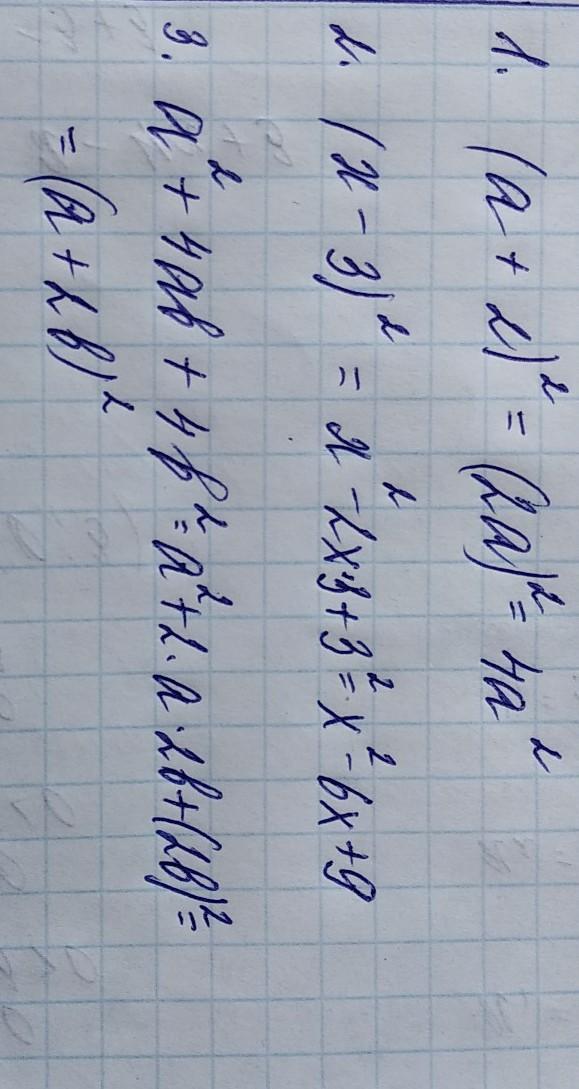 1. (a + 2)² = (2a)² = 4a²
2. (x - 3)² = x² - 2x·3 + 3² = x² - 6x + 9
3. a² + 4ab + 4b² = a² + 2·a·2b + (2b)² =
= (a + 2b)²